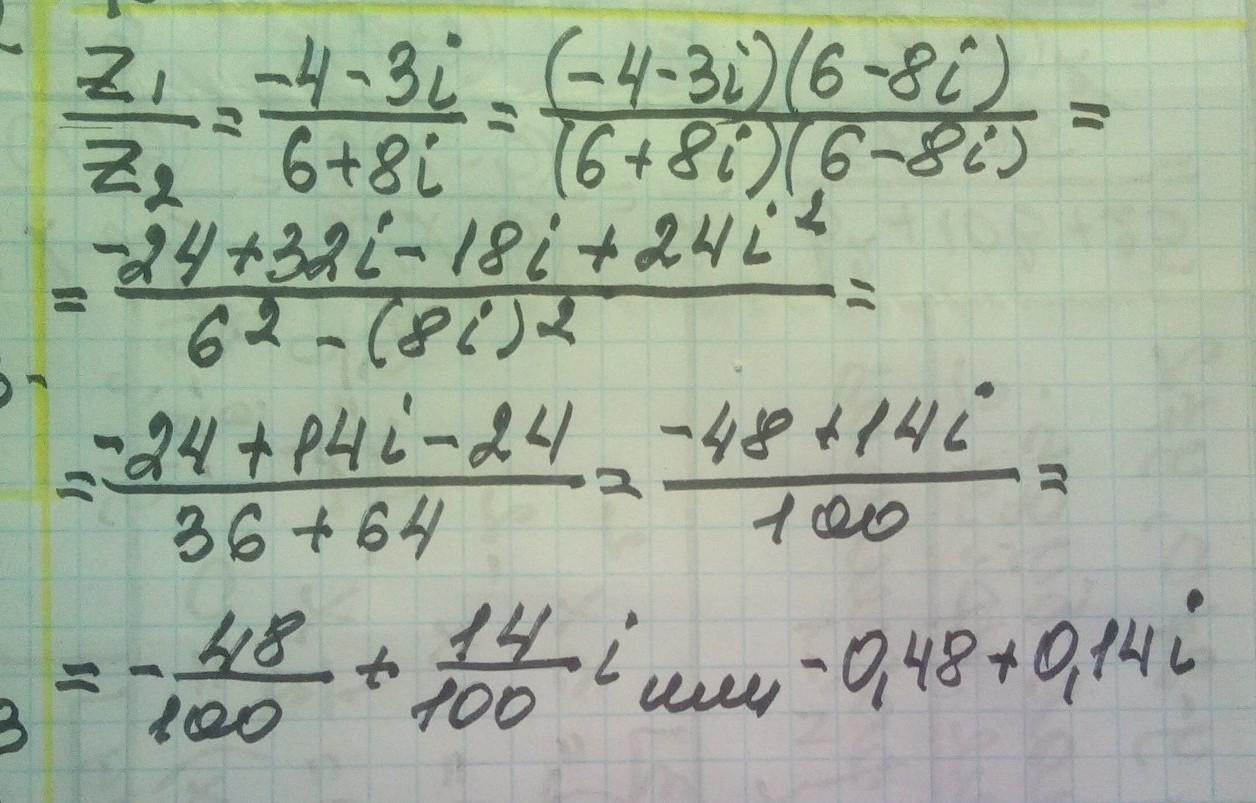 Z₁/Z₂ = (-4-3i)/(6+8i) = ((-4-3i)(6-8i))/((6+8i)(6-8i)) =
= (-24+32i-18i+24i²)/(6²-(8i)²) =
= (-24+14i-24)/(36+64) = (-48+14i)/100 =
= -48/100 + 14/100 i или -0,48+0,14i